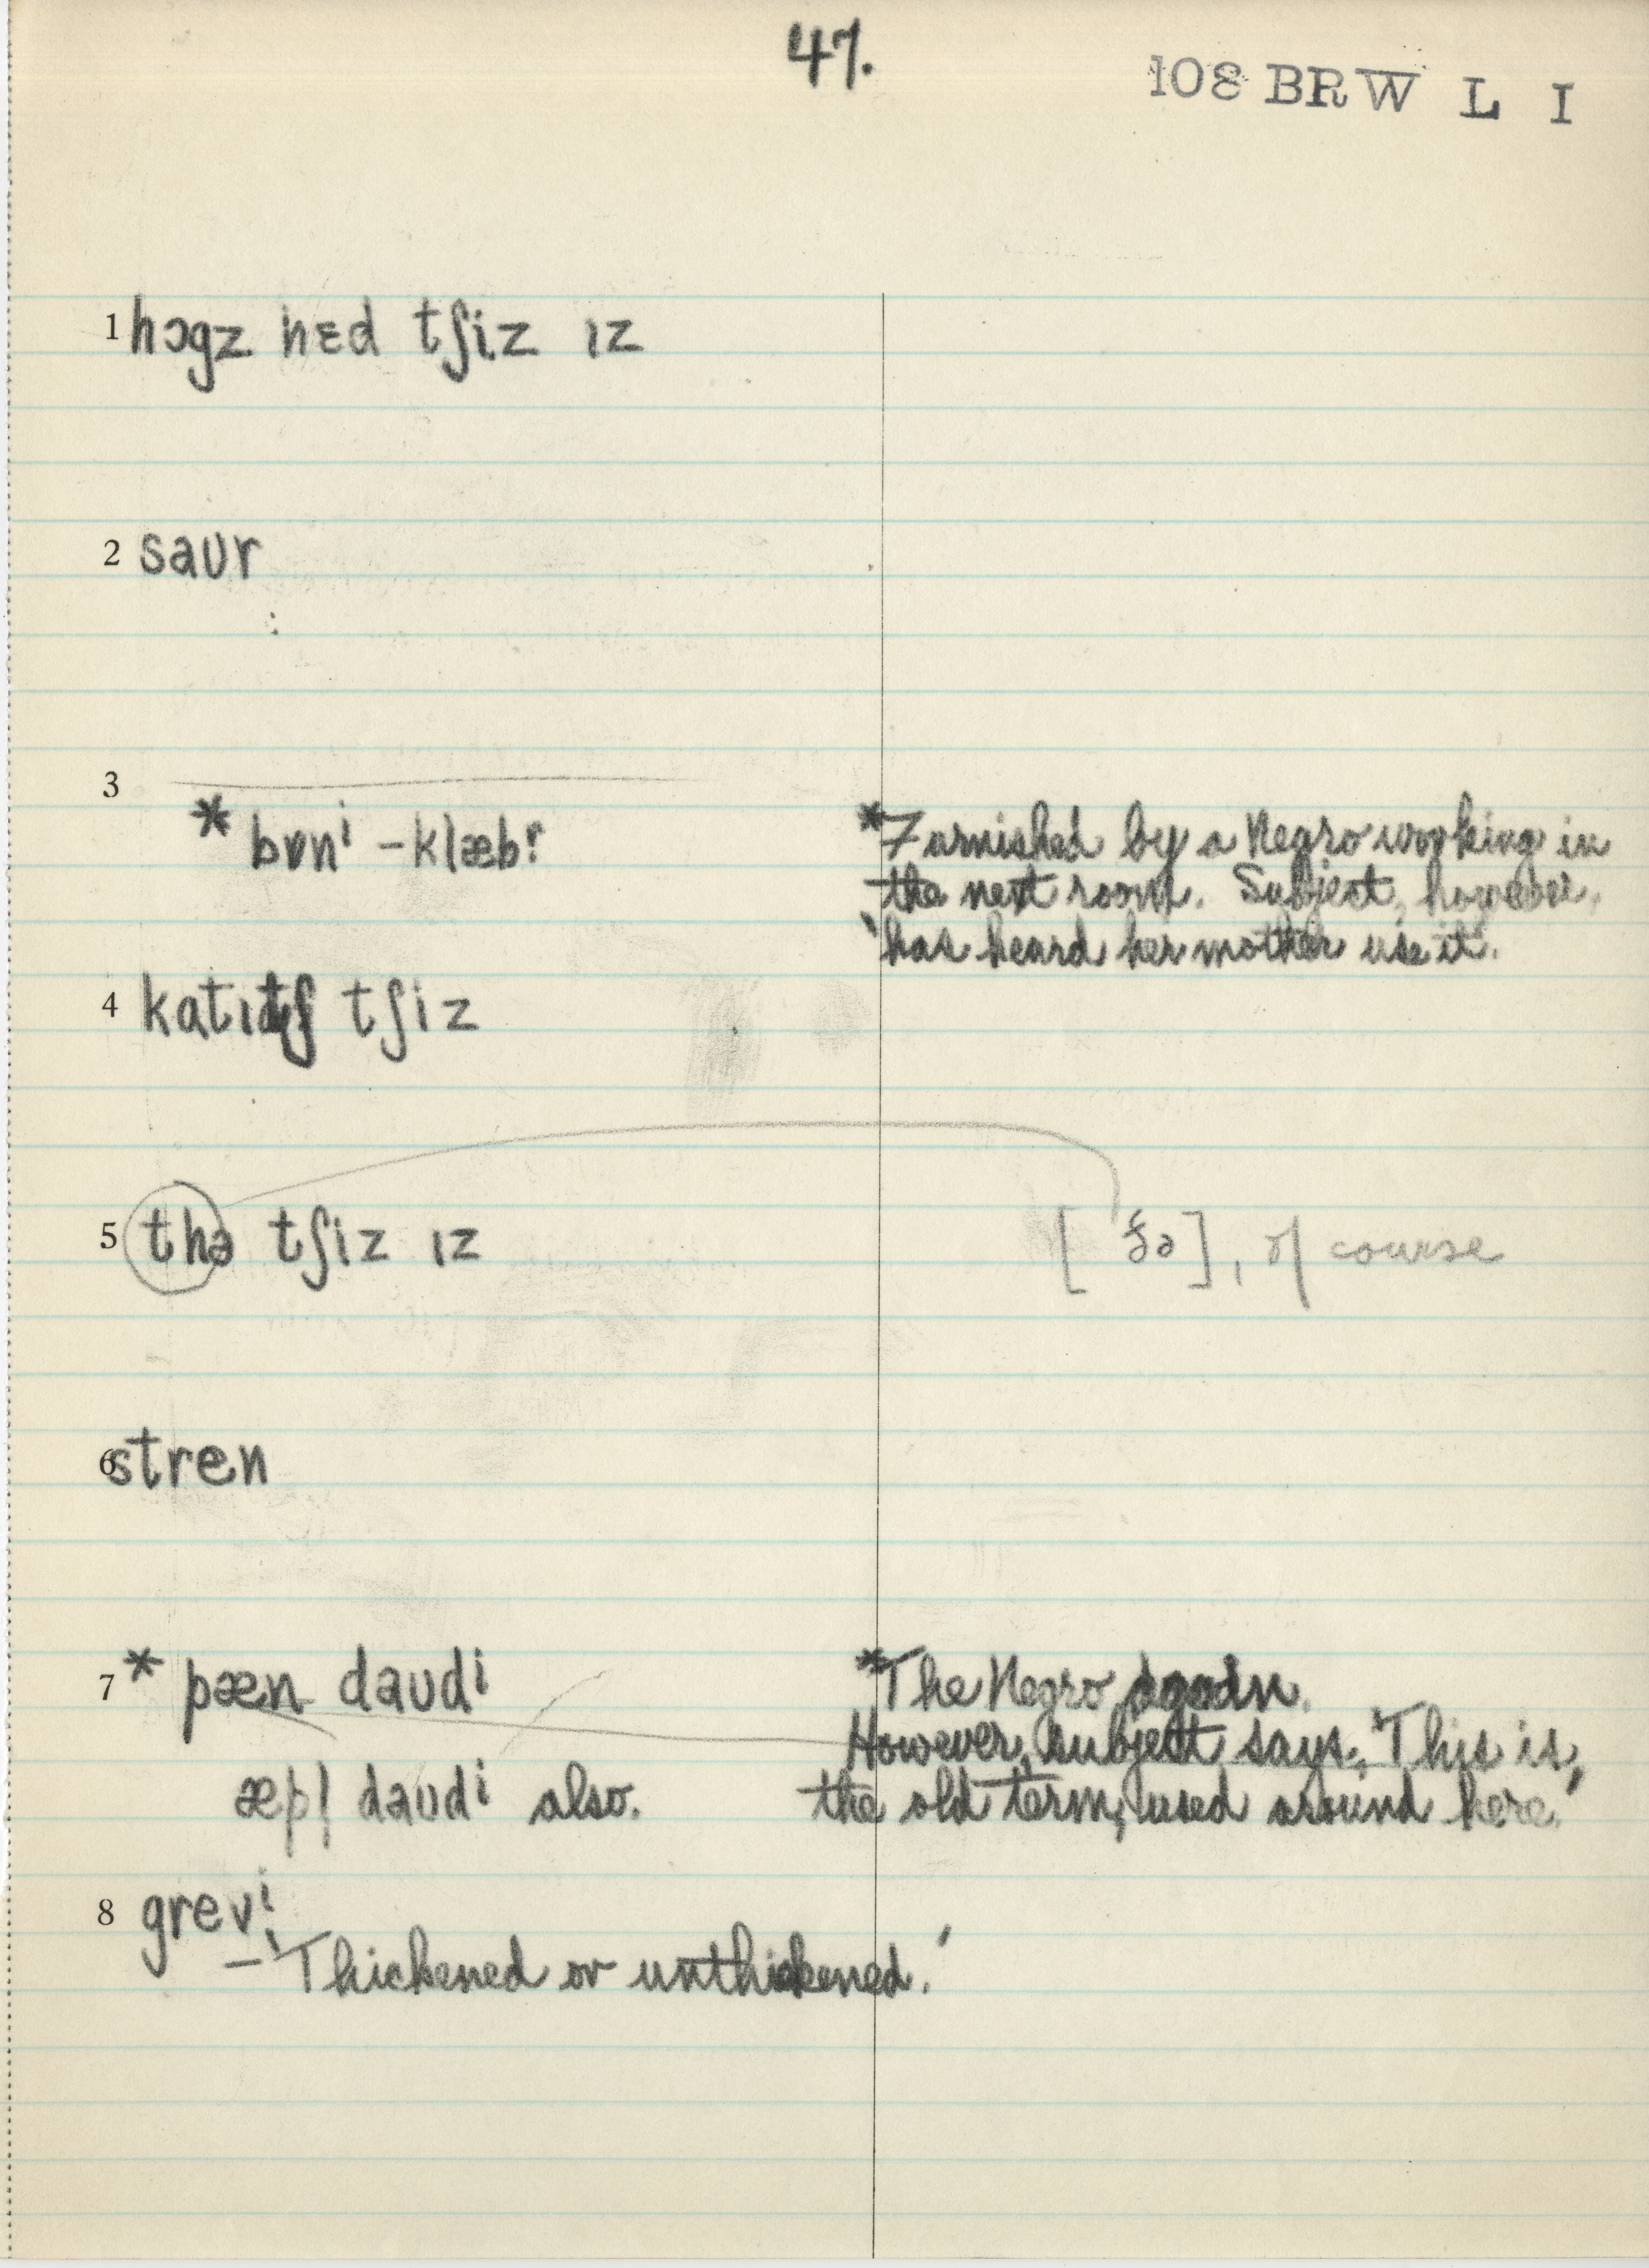 47.
108 BRW L I
1 hɔgz hɛd tʃiz ɪz
2 saʊr
3
* bɒnⁱ -klæbr
*Furnished by a Negro working in
the next room. Subject, however,
'has heard her mother use it'.
4 katɪdʒ tʃiz
5 thə tʃiz ɪz
[ ðə ], of course
6 stren
7 * pæn daʊdⁱ
*The Negro again.
However, subject says, 'This is
æpl̩ daʊdⁱ also.
the old term, used around here.'
8 grevⁱ
– 'Thickened or unthickened.'